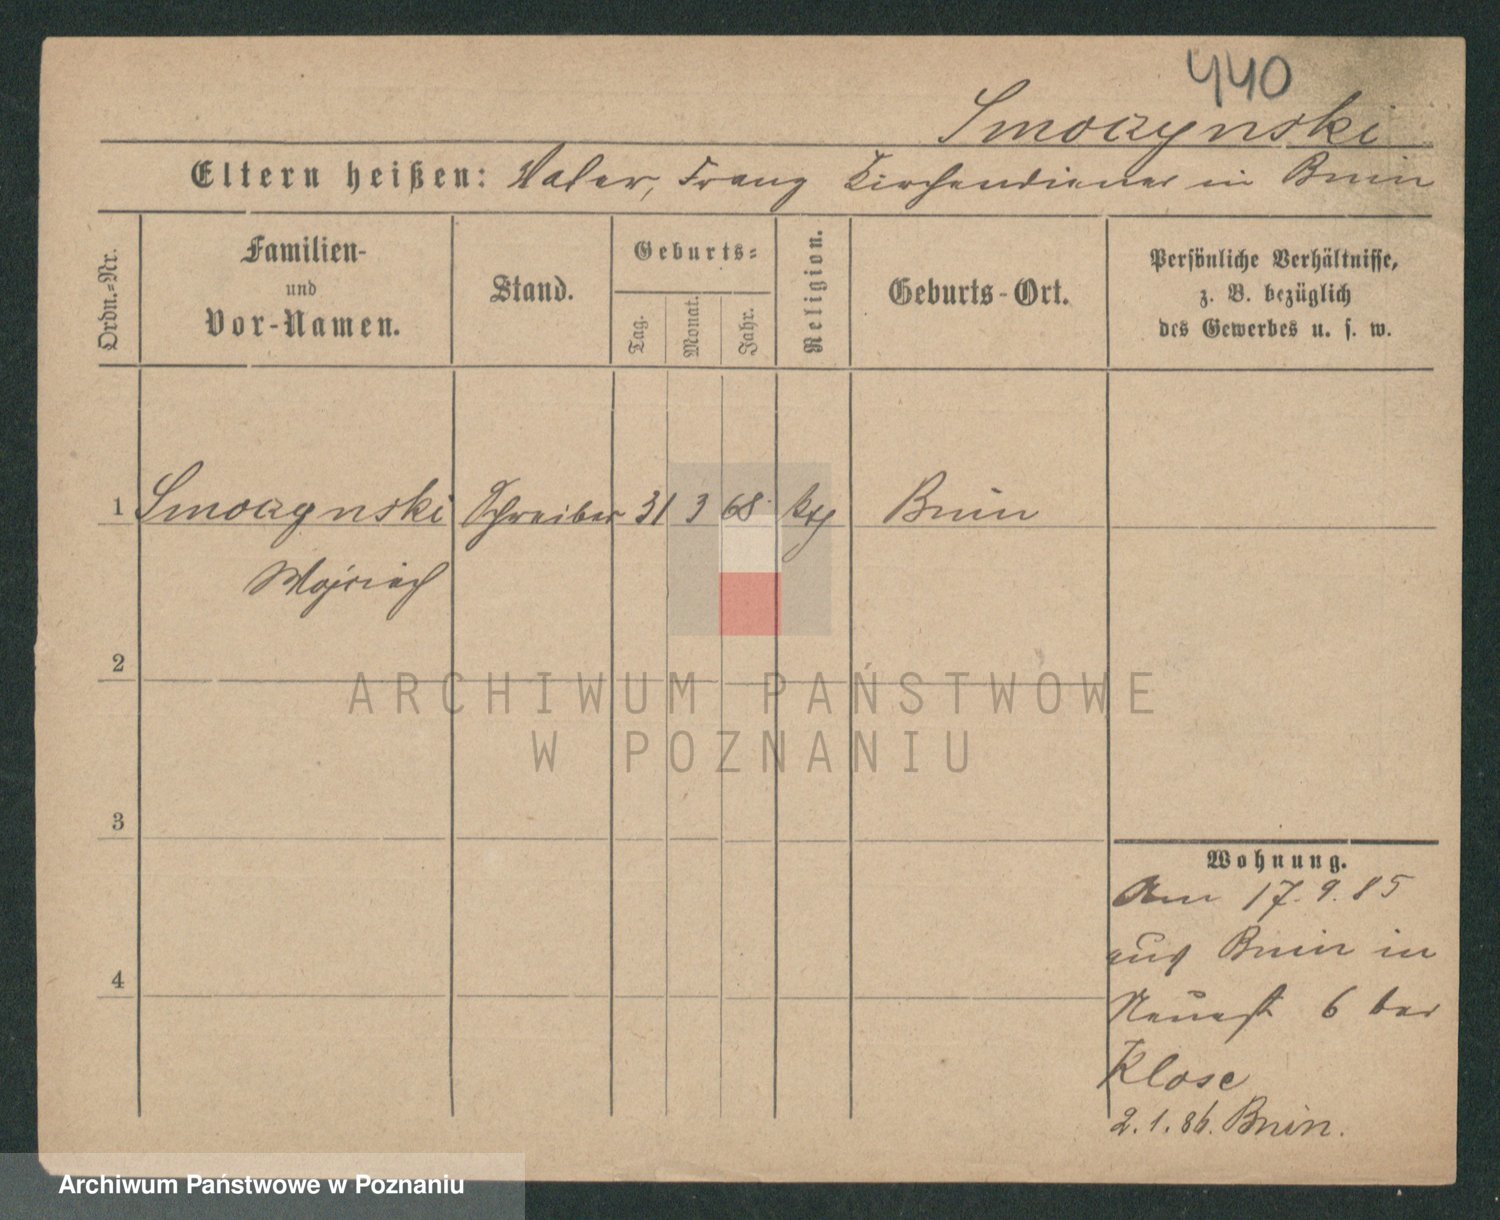 440
Smoczynski
Eltern heißen: Vater, Franz Kirchendiener in Bnin
Ordn.-Nr.
Familien-
und
Vor-Namen.
Stand.
Geburts-
Tag.
Monat.
Jahr.
Religion.
Geburts-Ort.
Persönliche Verhältnisse,
z. B. bezüglich
des Gewerbes u. s. w.
1 Smoczynski Schreiber 31 3 68 kth Bnin
Wojciech
2
3
4
Wohnung.
Am 17.9.85
aus Bnin in
6 bei
Klose
2.1.86. Bnin.
ARCHIWUM PAŃSTWOWE
W POZNANIU
Archiwum Państwowe w Poznaniu